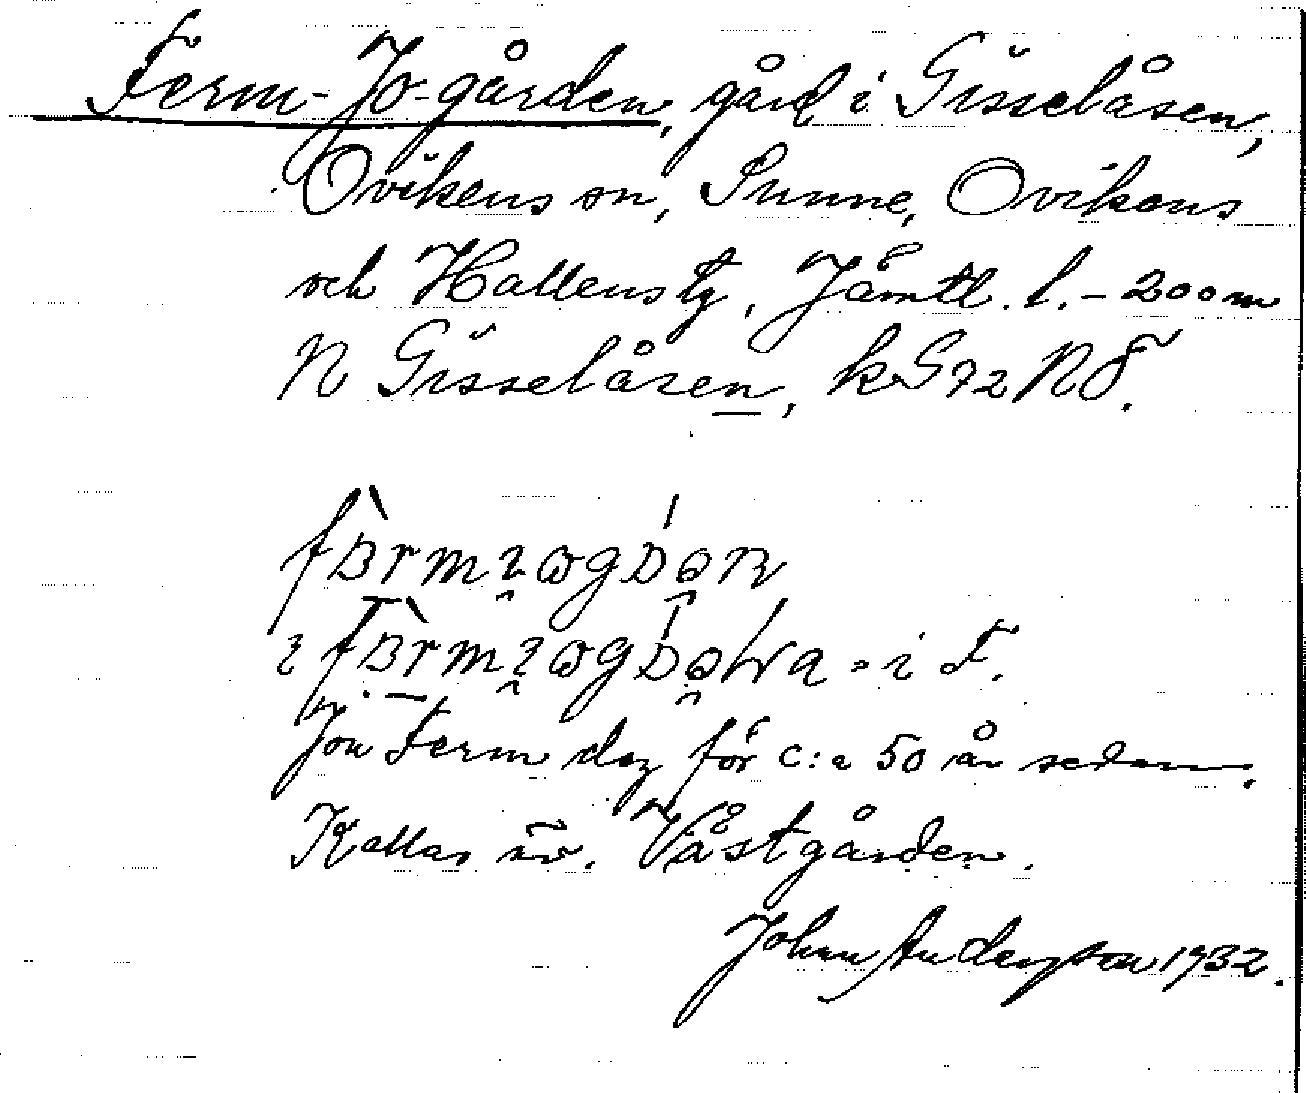 Ferm-Jo-gården, gård i Gisselåsen,
Ovikens sn, Sunne, Ovikens
och Hallens tg, Jämtl. l. - 200 m
N Gisselåsen, kG72NÖ.
i F.
Jon Ferm dog för c:a 50 år sedan.
Kallas äv. Västgården.
Johan Anderson 1932.